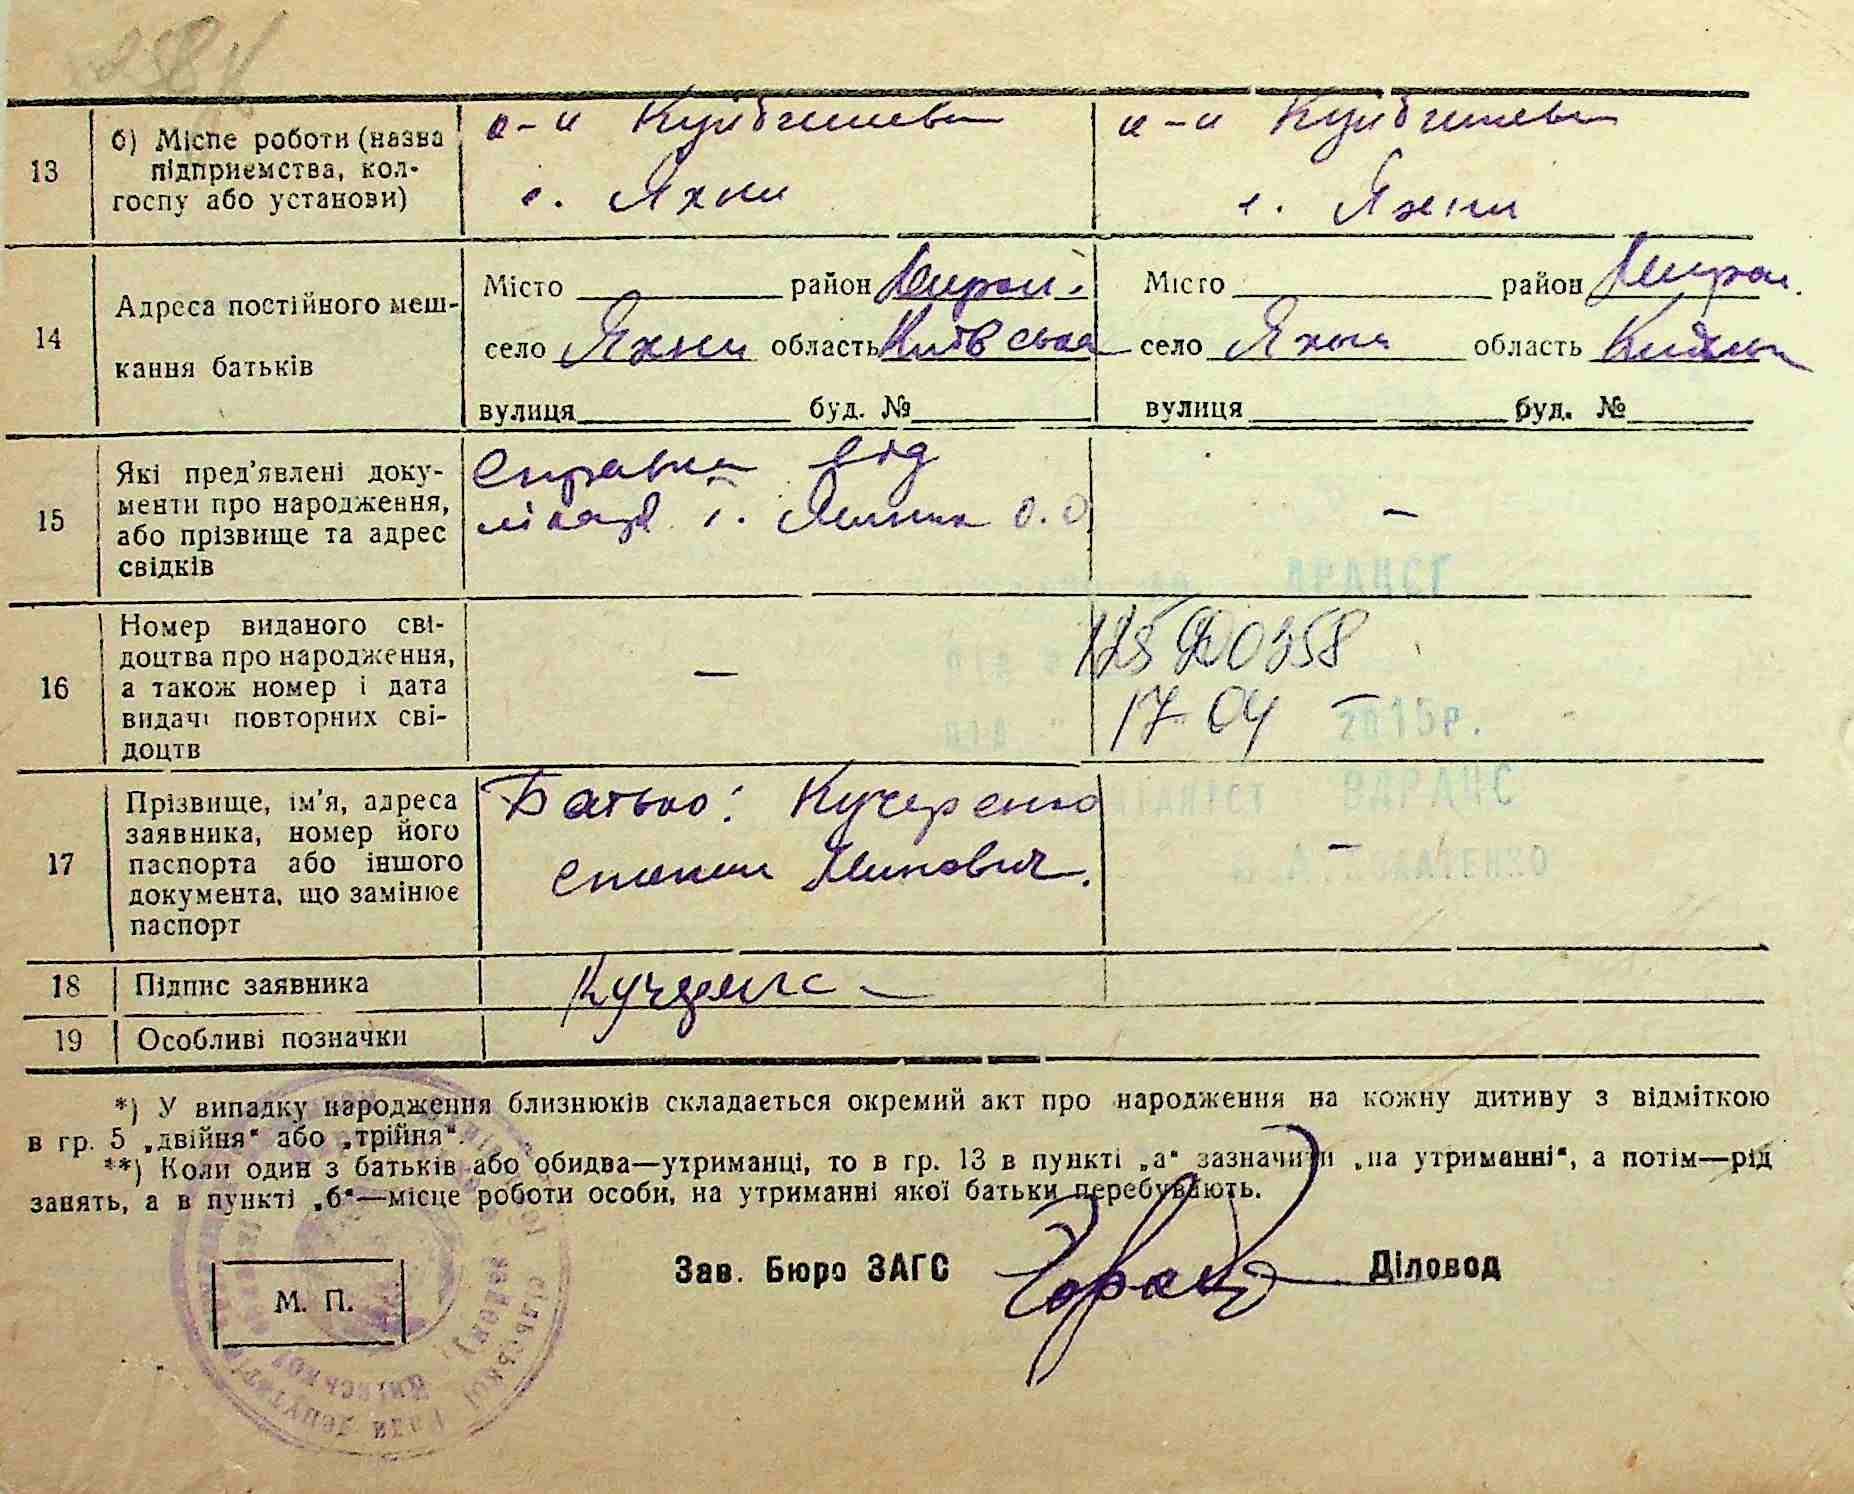 13
б) Місце роботи (назва
підприємства, кол-
госпу або установи)
к-п Куйбишева
с. Яхни
к-п Куйбишева
с. Яхни
14
Адреса постійного меш-
кання батьків
Місто район Мирон.
село Яхни область Київська
вулиця буд. №
Місто район Мирон.
село Яхни область
вулиця буд. №
15
Які пред'явлені доку-
менти про народження,
або прізвище та адрес
свідків
Справка від
—
16
Номер виданого сві-
доцтва про народження,
а також номер і дата
видачі повторних сві-
доцтв
—
17 04 2015р.
17
Прізвище, ім'я, адреса
заявника, номер його
паспорта або іншого
документа, що замінює
паспорт
Батько: Кучеренко
Степан Минович.
—
18
Підпис заявника
19
Особливі позначки
*) У випадку народження близнюків складається окремий акт про народження на кожну дитину з відміткою
в гр. 5 „двійня“ або „трійня“.
**) Коли один з батьків або обидва—утриманці, то в гр. 13 в пункті „а“ зазначити „на утриманні“, а потім—рід
занять, а в пункті „б“—місце роботи особи, на утриманні якої батьки перебувають.
М. П.
Зав. Бюро ЗАГС
Діловод